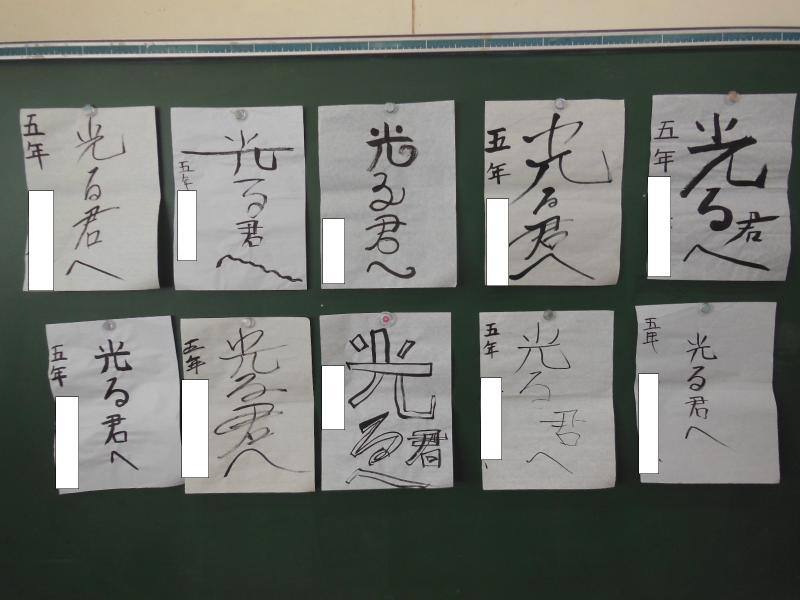 五年
光る君へ
五年
光る君へ
五年
光る君へ
光る君へ
五年
光る君へ
五年
光る君へ
五年
光る君へ
五年
光る君へ
光る君へ
五年
光る君へ
五年